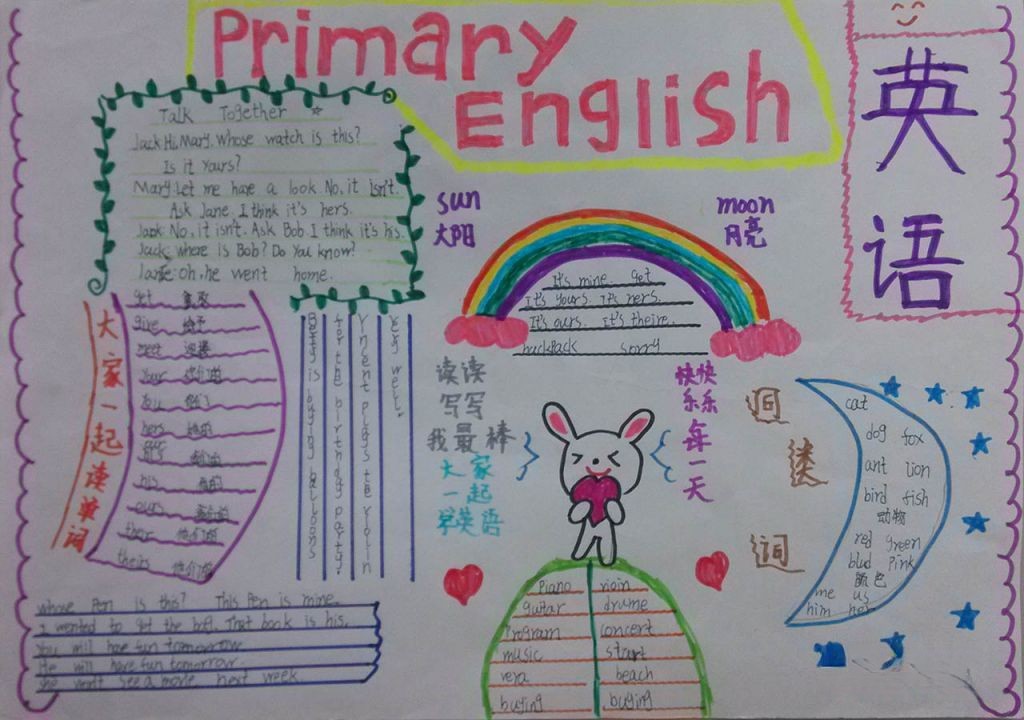 Primary
English
英
语
Talk Together
Jack: Hi, Mary. Whose watch is this?
Is it Yours?
Mary: Let me have a look. No, it isn't.
Ask Jane. I think it's hers.
No, it isn't. Ask Bob. I think it's his.
Jack: where is Bob? Do You know?
Jane: Oh, he went home.
sun
太阳
moon
月亮
It's mine get
It's yours. It's hers.
It's ours. it's theire.
backpack sorry
大家一起读单词
get
give 给予
meet
your
hers 她的
his 他的
ours
their 他们的
theirs 他们的
Betty is buying balloons
for the birthday party.
Vinsent plays the violin
very well.
读读
写写
我最棒
大家
一起
学英语
快快
乐乐
每一天
词
类
cat
dog fox
ant lion
bird fish
动物
red green
blud Pink
颜色
me us
him her
Piano
guitar drume
Program concert
music start
beach
buying buying
whose Pen is this? This Pen is mine.
I wented to get the That book is his.
You will have fun tomorrow
He will have fun tomorrow.
She went see a movie next week.